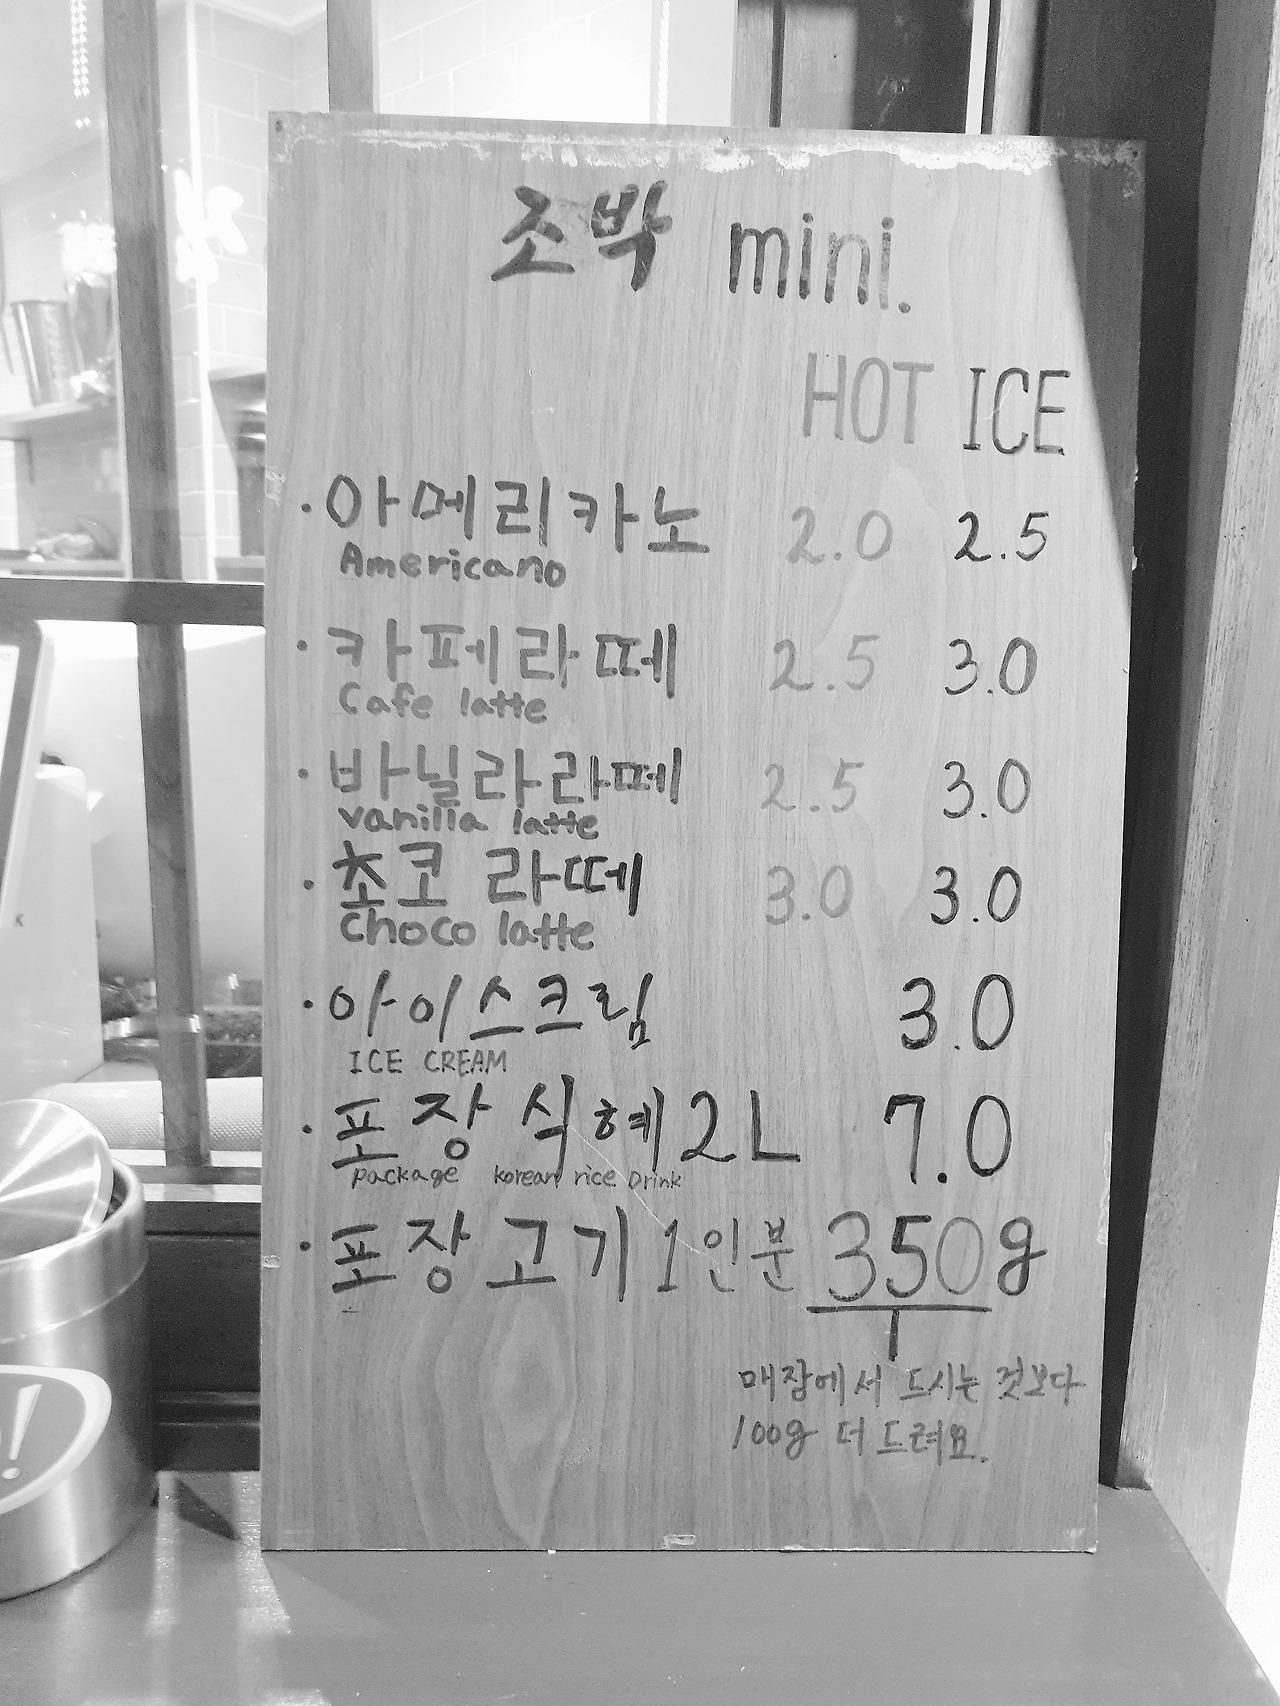 조박 mini.
HOT ICE
· 아메리카노 2.0 2.5
Americano
· 카페라떼 2.5 3.0
Cafe latte
· 바닐라라떼 2.5 3.0
vanilla latte
· 쵸코 라떼 3.0 3.0
Choco latte
· 아이스크림 3.0
ICE CREAM
· 포장 식혜 2L 7.0
package korean rice Drink
· 포장 고기 1인분 350g
매장에서 드시는 것보다
100g 더 드려요.
K